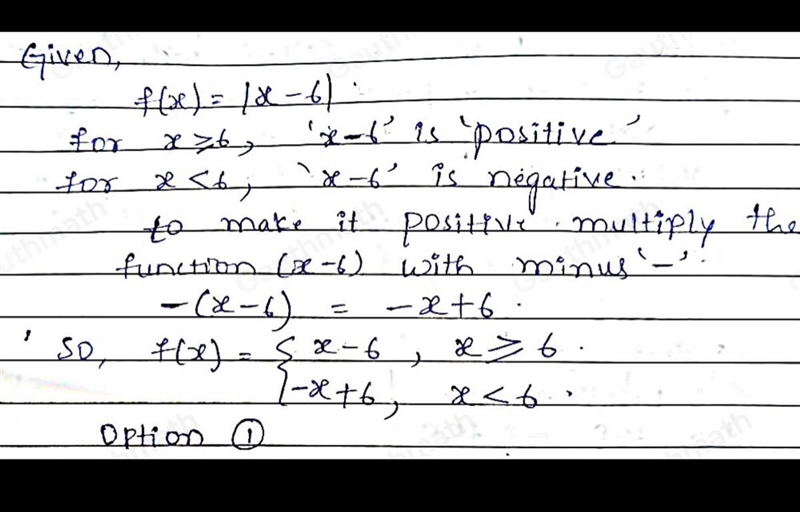 Given,
f(x) = |x-6|.
for x ≥ 6, 'x-6' is 'positive'
for x < 6, 'x-6' is negative.
to make it positive. multiply the
function (x-6) with minus '-'.
-(x-6) = -x+6.
' So, f(x) = { x-6, x ≥ 6.
-x+6, x < 6.
Option ①